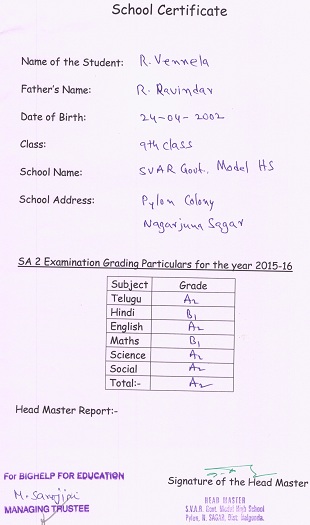 School Certificate
Name of the Student: R. Vennela
Father's Name: R. Ravindar
Date of Birth: 24-04-2002
Class: 9th class
School Name: SVAR Govt. Model HS
School Address: Pylon Colony
Nagarjuna Sagar
SA 2 Examination Grading Particulars for the year 2015-16
Subject Grade
Telugu A2
Hindi B1
English A2
Maths B1
Science A2
Social A2
Total:- A2
Head Master Report:-
For BIGHELP FOR EDUCATION
M. Sarojini
MANAGING TRUSTEE
Signature of the Head Master
HEAD MASTER
S.V.A.R. Govt. Model High School
Pylon, N. SAGAR, Dist: Nalgonda.